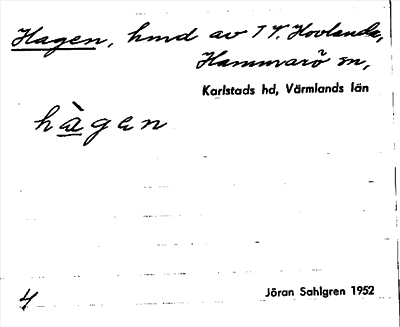 Hagen, hmd av 1 Y. Hovlanda,
Hammarö sn,
Karlstads hd, Värmlands län
hàgen
4
Jöran Sahlgren 1952